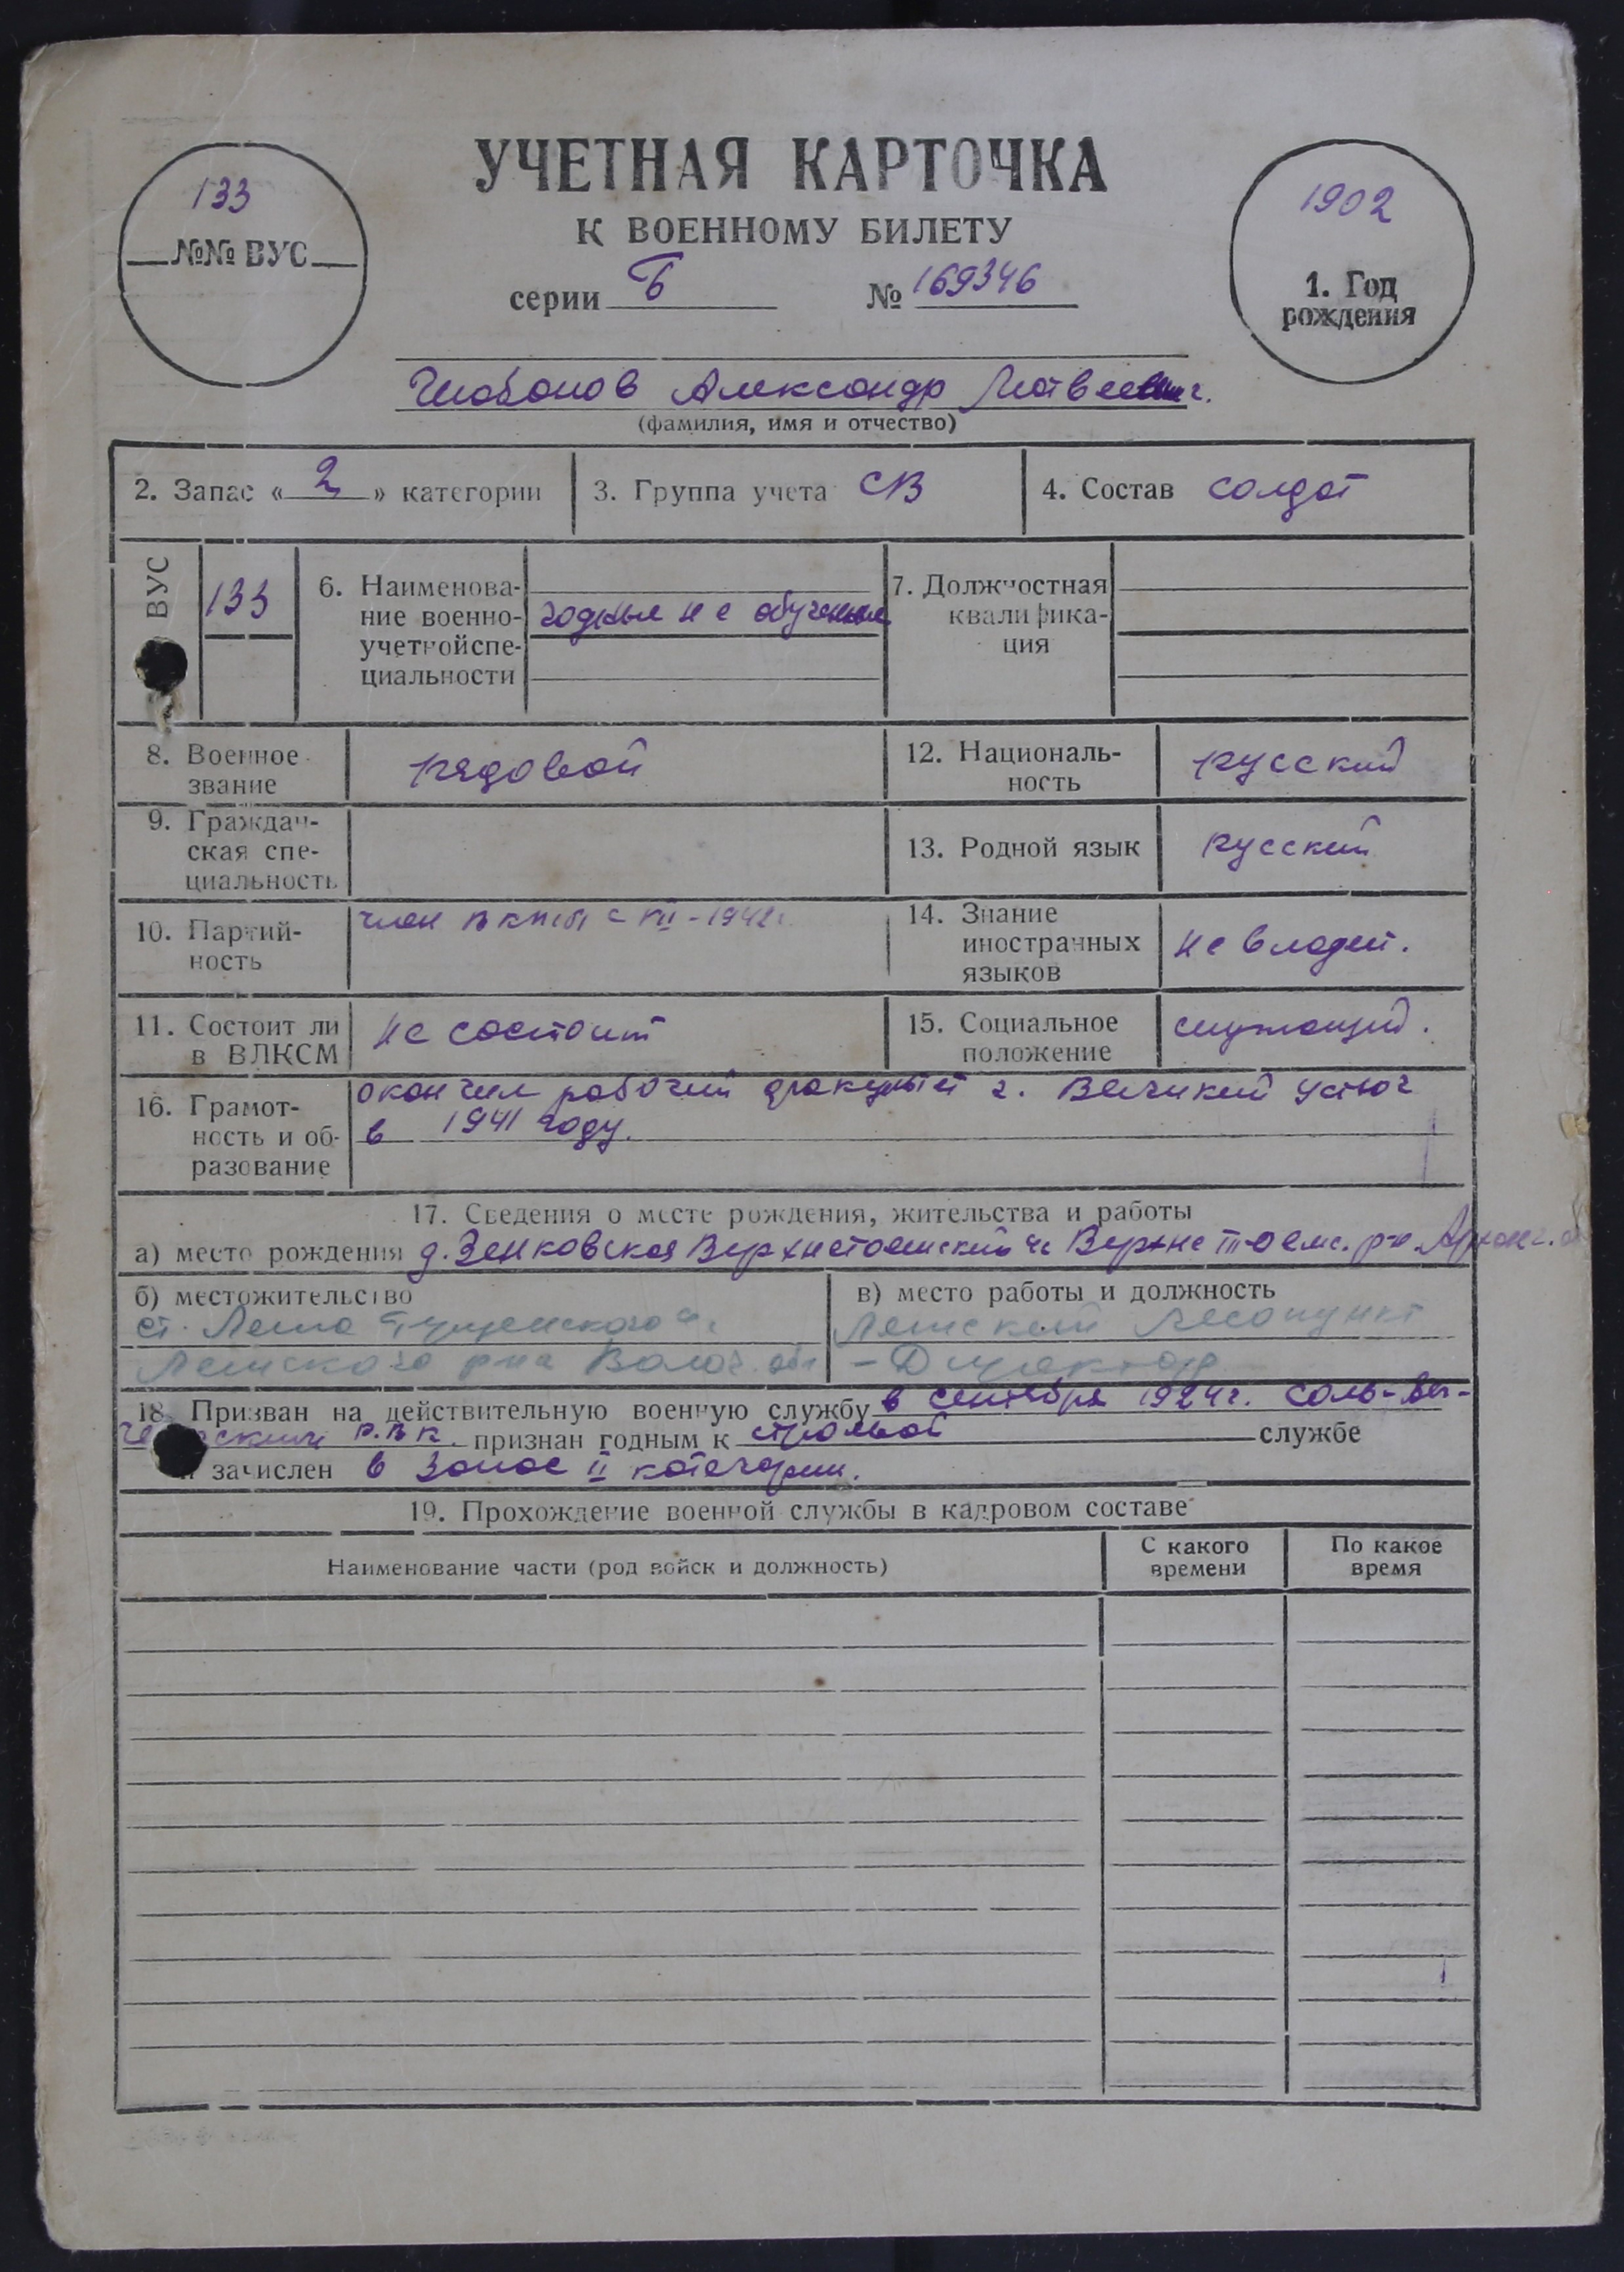 УЧЕТНАЯ КАРТОЧКА
К ВОЕННОМУ БИЛЕТУ
серии Б № 169346
133
№№ ВУС
1902
1. Год
рождения
Александр Матвеевич.
(фамилия, имя и отчество)
2. Запас « 2 » категории
3. Группа учета СВ
4. Состав солдат
ВУС
133
6. Наименова-
ние военно-
учетной спе-
циальности
годные не обученные
7. Должностная
квалифика-
ция
8. Военное
звание
рядовой
12. Националь-
ность
русский
9. Граждан-
ская спе-
циальность
13. Родной язык
русский
10. Партий-
ность
член ВКП(б) с VII-1942г.
14. Знание
иностранных
языков
не владеет.
11. Состоит ли
в ВЛКСМ
не состоит
15. Социальное
положение
служащий.
16. Грамот-
ность и об-
разование
окончил рабочий факультет г. Великий Устюг
в 1941 году.
17. Сведения о месте рождения, жительства и работы
а) место рождения д. Зенковская Верхне Тоемс. р-н. Арханг.
б) местожительство
ст. Лежа
р-на Волог. обл
в) место работы и должность
Лесопункт
- Директор
18. Призван на действительную военную службу в сентябре 1924г. Соль-Вы-
Р.В.К. признан годным к строевой службе
и зачислен в запас II категории.
19. Прохождение военной службы в кадровом составе
Наименование части (род войск и должность)
С какого
времени
По какое
время